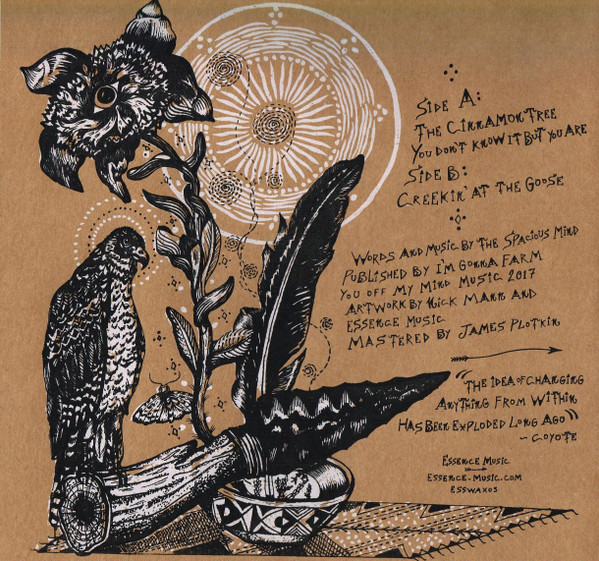 SIDE A:
THE CINNAMON TREE
YOU DON'T KNOW IT BUT YOU ARE
SIDE B:
CREEKIN' AT THE GOOSE
WORDS AND MUSIC BY THE SPACIOUS MIND
PUBLISHED BY I'M GONNA FARM
YOU OFF MY MIND MUSIC 2017
ARTWORK BY NICK MANN AND
ESSENCE MUSIC
MASTERED BY JAMES PLOTKIN
"THE IDEA OF CHANGING
ANYTHING FROM WITHIN
HAS BEEN EXPLODED LONG AGO"
- COYOTE
ESSENCE MUSIC
ESSENCE-MUSIC.COM
ESSWAX05